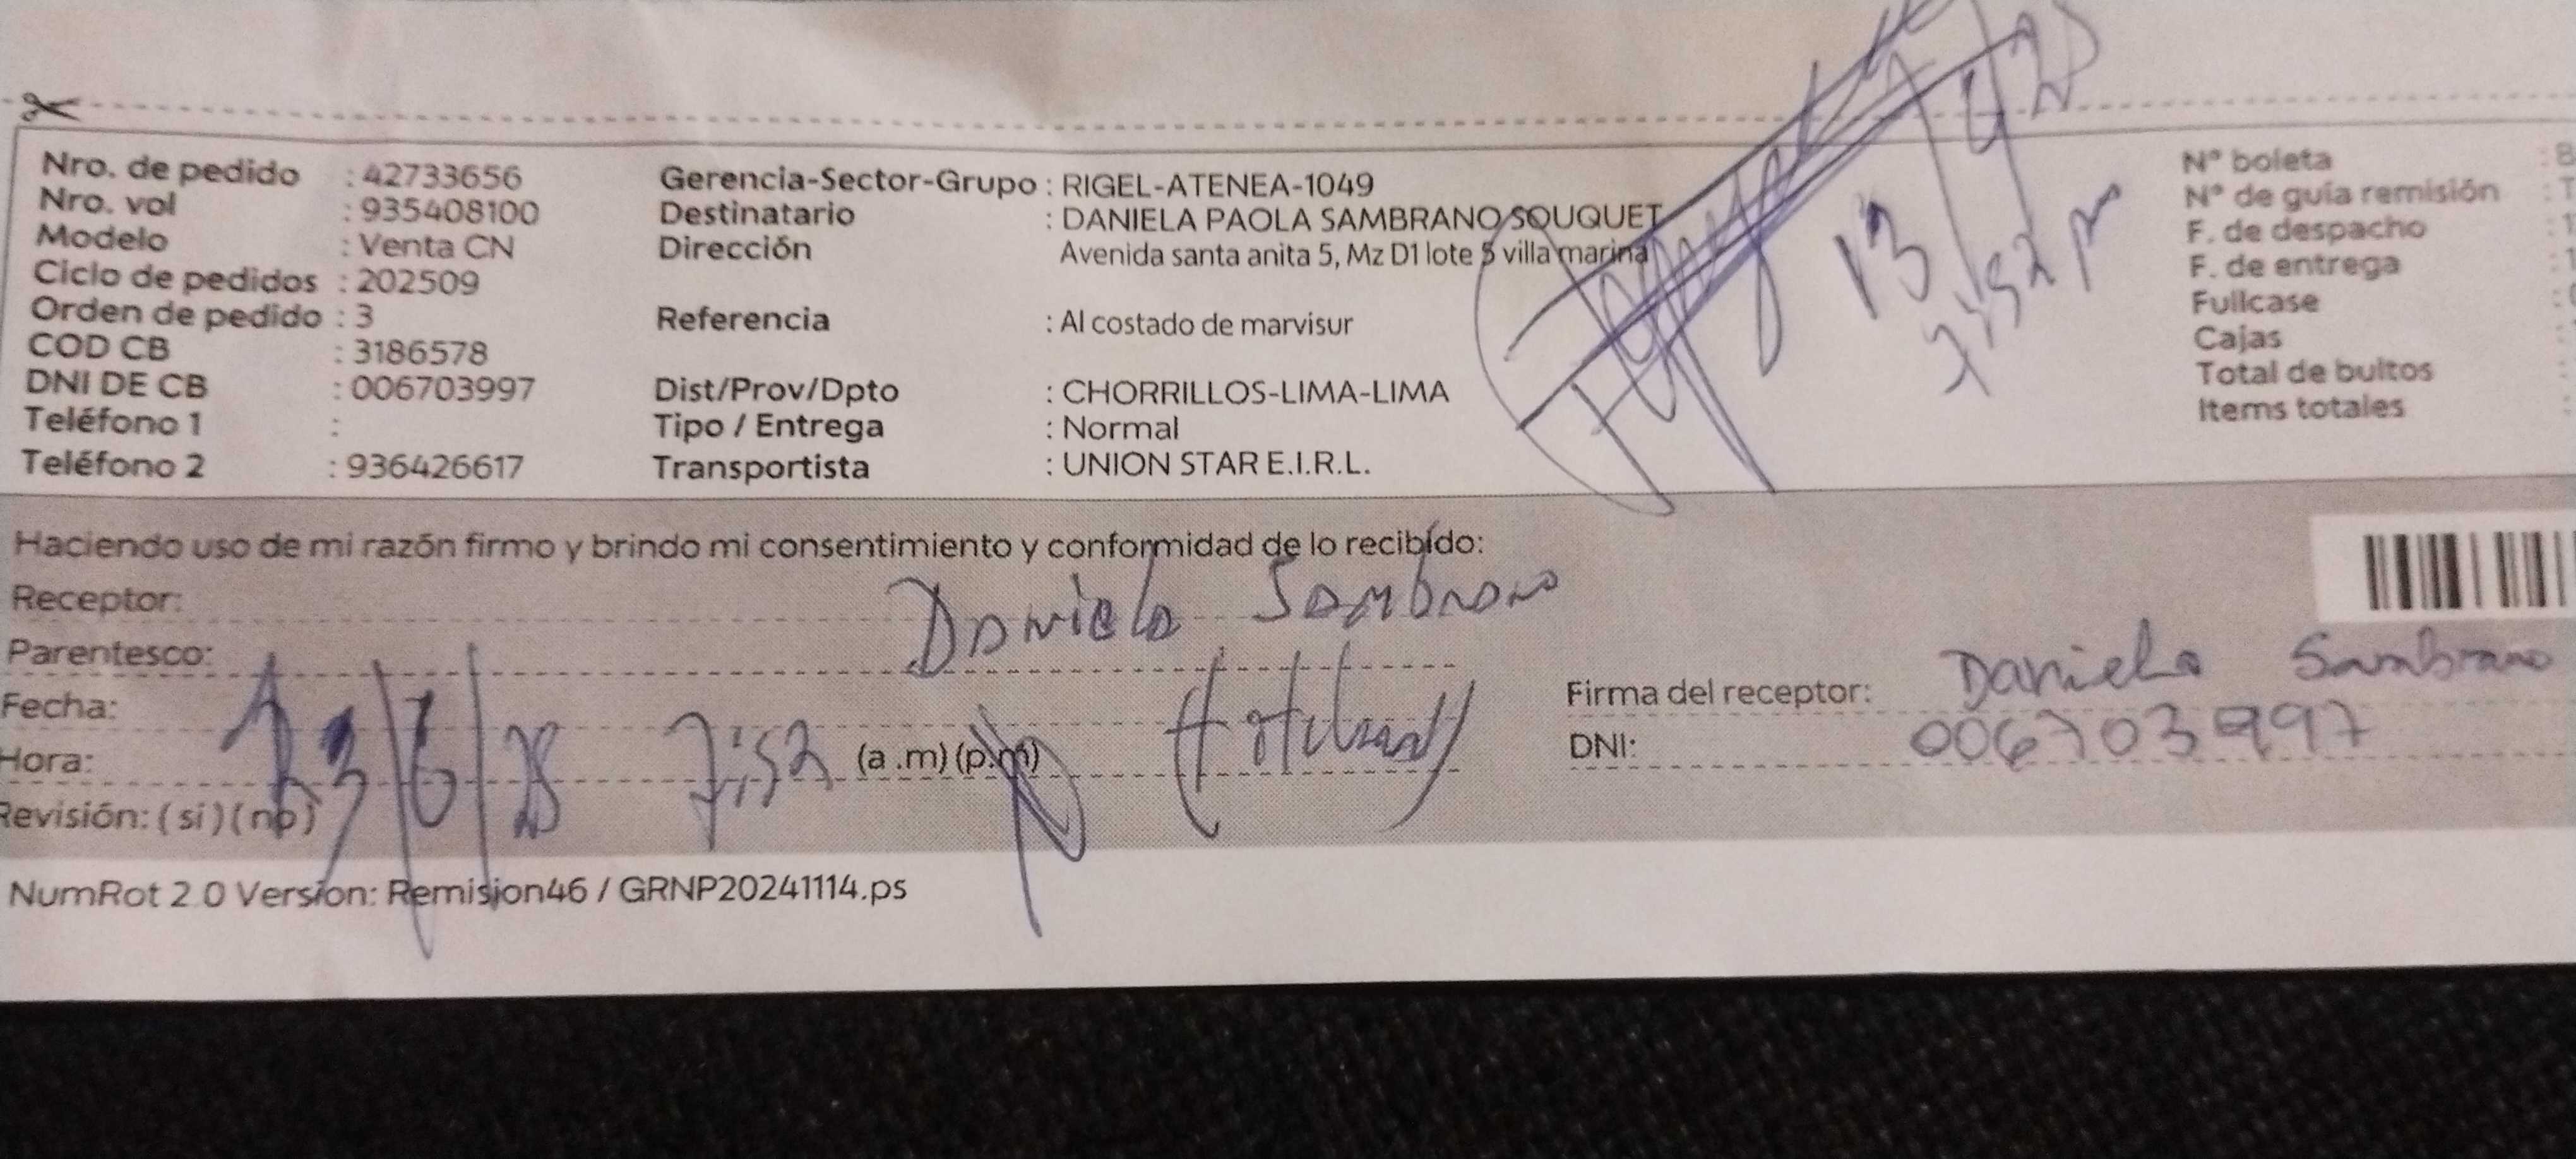 Nro. de pedido : 42733656
Nro. vol : 935408100
Modelo : Venta CN
Ciclo de pedidos : 202509
Orden de pedido : 3
COD CB : 3186578
DNI DE CB : 006703997
Teléfono 1 :
Teléfono 2 : 936426617
Gerencia-Sector-Grupo : RIGEL-ATENEA-1049
Destinatario : DANIELA PAOLA SAMBRANO SOUQUET
Dirección Avenida santa anita 5, Mz D1 lote 5 villa marina
Referencia : Al costado de marvisur
Dist/Prov/Dpto : CHORRILLOS-LIMA-LIMA
Tipo / Entrega : Normal
Transportista : UNION STAR E.I.R.L.
13
7:52 pm
N° boleta :
N° de guía remisión :
F. de despacho :
F. de entrega :
Fullcase :
Cajas :
Total de bultos :
Items totales :
Haciendo uso de mi razón firmo y brindo mi consentimiento y conformidad de lo recibido:
Receptor: Daniela Sambrano
Parentesco:
Fecha: 13/6/25
Hora: 7:52 (a .m) (p.m)
Revisión: ( si ) ( no )
Firma del receptor: Daniela Sambrano
DNI: 006703997
NumRot 2.0 Version: Remision46 / GRNP20241114.ps